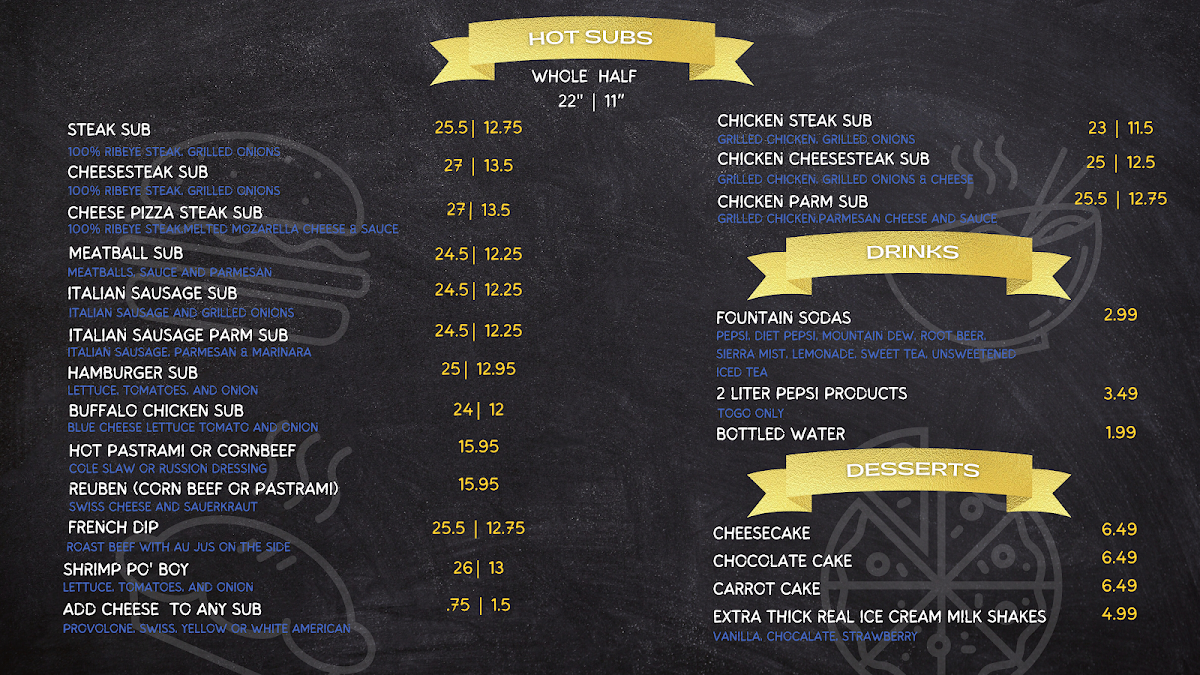 HOT SUBS
WHOLE HALF
22" | 11"
STEAK SUB 25.5 | 12.75
100% RIBEYE STEAK, GRILLED ONIONS
CHEESESTEAK SUB 27 | 13.5
100% RIBEYE STEAK, GRILLED ONIONS
CHEESE PIZZA STEAK SUB 27 | 13.5
100% RIBEYE STEAK,MELTED MOZARELLA CHEESE & SAUCE
MEATBALL SUB 24.5 | 12.25
MEATBALLS, SAUCE AND PARMESAN
ITALIAN SAUSAGE SUB 24.5 | 12.25
ITALIAN SAUSAGE AND GRILLED ONIONS
ITALIAN SAUSAGE PARM SUB 24.5 | 12.25
ITALIAN SAUSAGE, PARMESAN & MARINARA
HAMBURGER SUB 25 | 12.95
LETTUCE, TOMATOES, AND ONION
BUFFALO CHICKEN SUB 24 | 12
BLUE CHEESE LETTUCE TOMATO AND ONION
HOT PASTRAMI OR CORNBEEF 15.95
COLE SLAW OR RUSSION DRESSING
REUBEN (CORN BEEF OR PASTRAMI) 15.95
SWISS CHEESE AND SAUERKRAUT
FRENCH DIP 25.5 | 12.75
ROAST BEEF WITH AU JUS ON THE SIDE
SHRIMP PO' BOY 26 | 13
LETTUCE, TOMATOES, AND ONION
ADD CHEESE TO ANY SUB .75 | 1.5
PROVOLONE, SWISS, YELLOW OR WHITE AMERICAN
CHICKEN STEAK SUB 23 | 11.5
GRILLED CHICKEN, GRILLED ONIONS
CHICKEN CHEESESTEAK SUB 25 | 12.5
GRILLED CHICKEN, GRILLED ONIONS & CHEESE
CHICKEN PARM SUB 25.5 | 12.75
GRILLED CHICKEN,PARMESAN CHEESE AND SAUCE
DRINKS
FOUNTAIN SODAS 2.99
PEPSI, DIET PEPSI, MOUNTAIN DEW, ROOT BEER,
SIERRA MIST, LEMONADE, SWEET TEA, UNSWEETENED
ICED TEA
2 LITER PEPSI PRODUCTS 3.49
TOGO ONLY
BOTTLED WATER 1.99
DESSERTS
CHEESECAKE 6.49
CHOCOLATE CAKE 6.49
CARROT CAKE 6.49
EXTRA THICK REAL ICE CREAM MILK SHAKES 4.99
VANILLA, CHOCALATE, STRAWBERRY